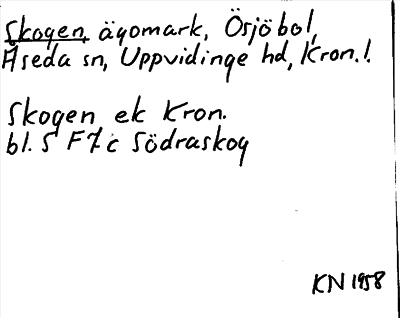 Skogen, ägomark, Ösjöbol,
Åseda sn, Uppvidinge hd, Kron.l.
Skogen ek Kron.
bl. 5 F7c Södraskog
KN 1958